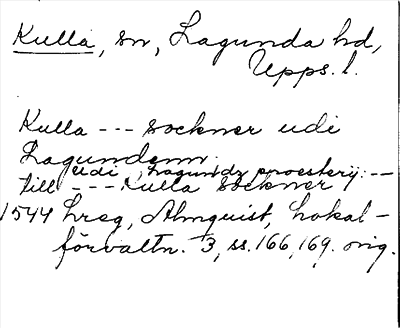 Kulla, sn, Lagunda hd,
Upps. l.
Kulla --- sockner udi
Lagundenn
udi Lagundz proesterij: --
till --- Kulla sockner
1544 hreg, Almquist, Lokal-
förvaltn. 3, ss. 166, 169. orig.